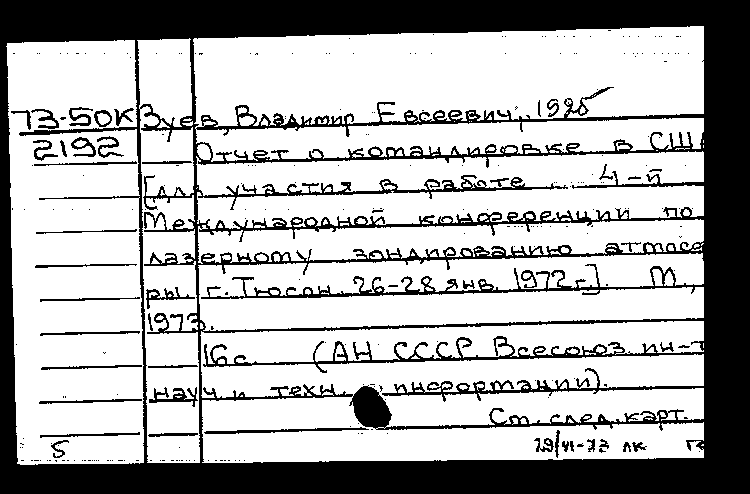 73-50К Зуев, Владимир Евсеевич, 1925
2192 Отчет о командировке в США
[для участия в работе 4-й
Международной конференции по
лазерному зондированию атмосфе
ры. г. Тюсон. 26-28 янв. 1972 г.]. М.,
1973.
16 с. (АН СССР. Всесоюз. ин-т
науч. и техн. информации).
См. след. карт.
5 29/VI-73 лк